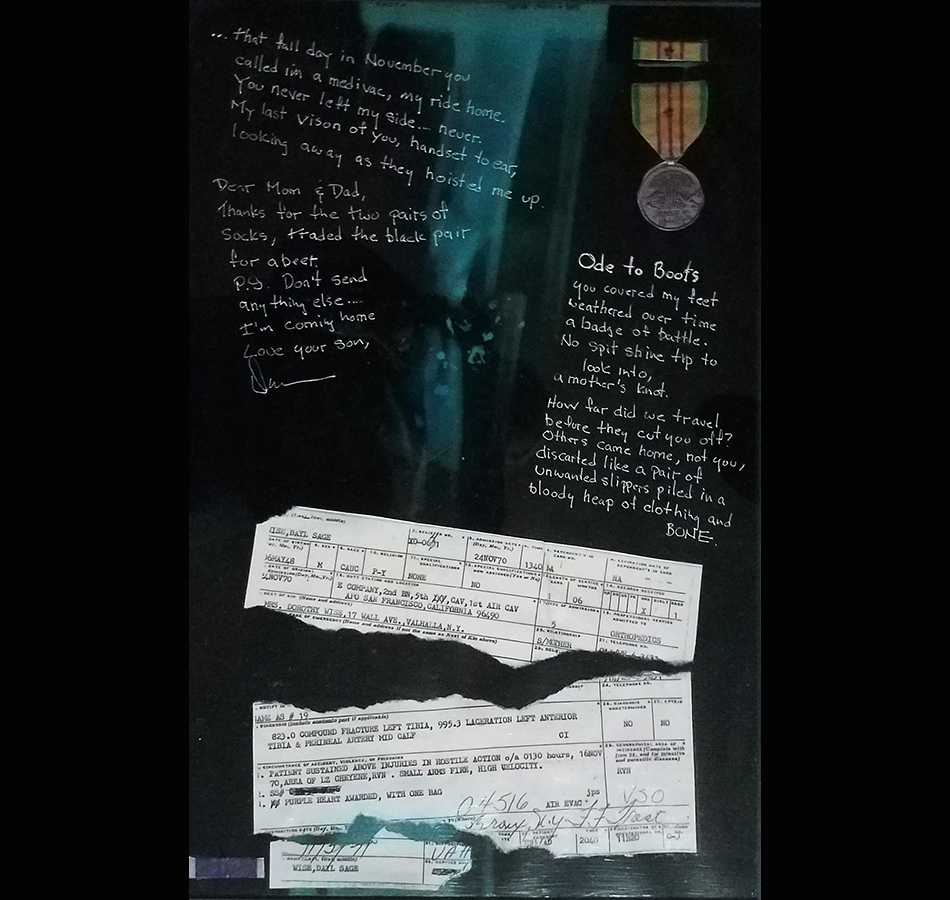 ... that fall day in November you
called in a medivac, my ride home.
You never left my side.... never.
My last vison of you, handset to ear,
looking away as they hoisted me up.
Dear Mom & Dad,
Thanks for the two pairs of
socks, traded the black pair
for a beer.
P.S. Don't send
anything else....
I'm coming home
Love your son,
Ode to Boots
you covered my feet
weathered over time
a badge of battle.
No spit shine tip to
look into,
a mother's knot.
How far did we travel
before they cut you off?
Others came home, not you,
discarted like a pair of
unwanted slippers piled in a
bloody heap of clothing and
BONE.
(Last, first, middle)
WISE,DAYL SAGE
24NOV70
1340
NA
NA
16MAY48
M
CAUC
P-Y
NONE
NO
06
X
1
24NOV70
E COMPANY,2nd BN,5th CAV,1st AIR CAV
APO SAN FRANCISCO,CALIFORNIA 96490
5
ORTHOPEDICS
MRS. DOROTHY WISE,17 WALL AVE.,VALHALLA,N.Y.
(Name and address if not the same as Next of Kin above)
S/MOTHER
SAME AS # 19
DIAGNOSIS (Include anatomic part if applicable)
823.0 COMPOUND FRACTURE LEFT TIBIA, 995.3 LACERATION LEFT ANTERIOR
TIBIA & PERINEAL ARTERY MID CALF
OI
NO
NO
CIRCUMSTANCE OF ACCIDENT, VIOLENCE, OR POISONING
PATIENT SUSTAINED ABOVE INJURIES IN HOSTILE ACTION o/a 0130 hours, 16NOV
70,AREA OF LZ CHEYENE,RVN . SMALL ARMS FIRE, HIGH VELOCITY.
RVN
SS#
PURPLE HEART AWARDED, WITH ONE BAG
jps
04516
AIR EVAC
VSO
2040
71B20
WISE,DAYL SAGE